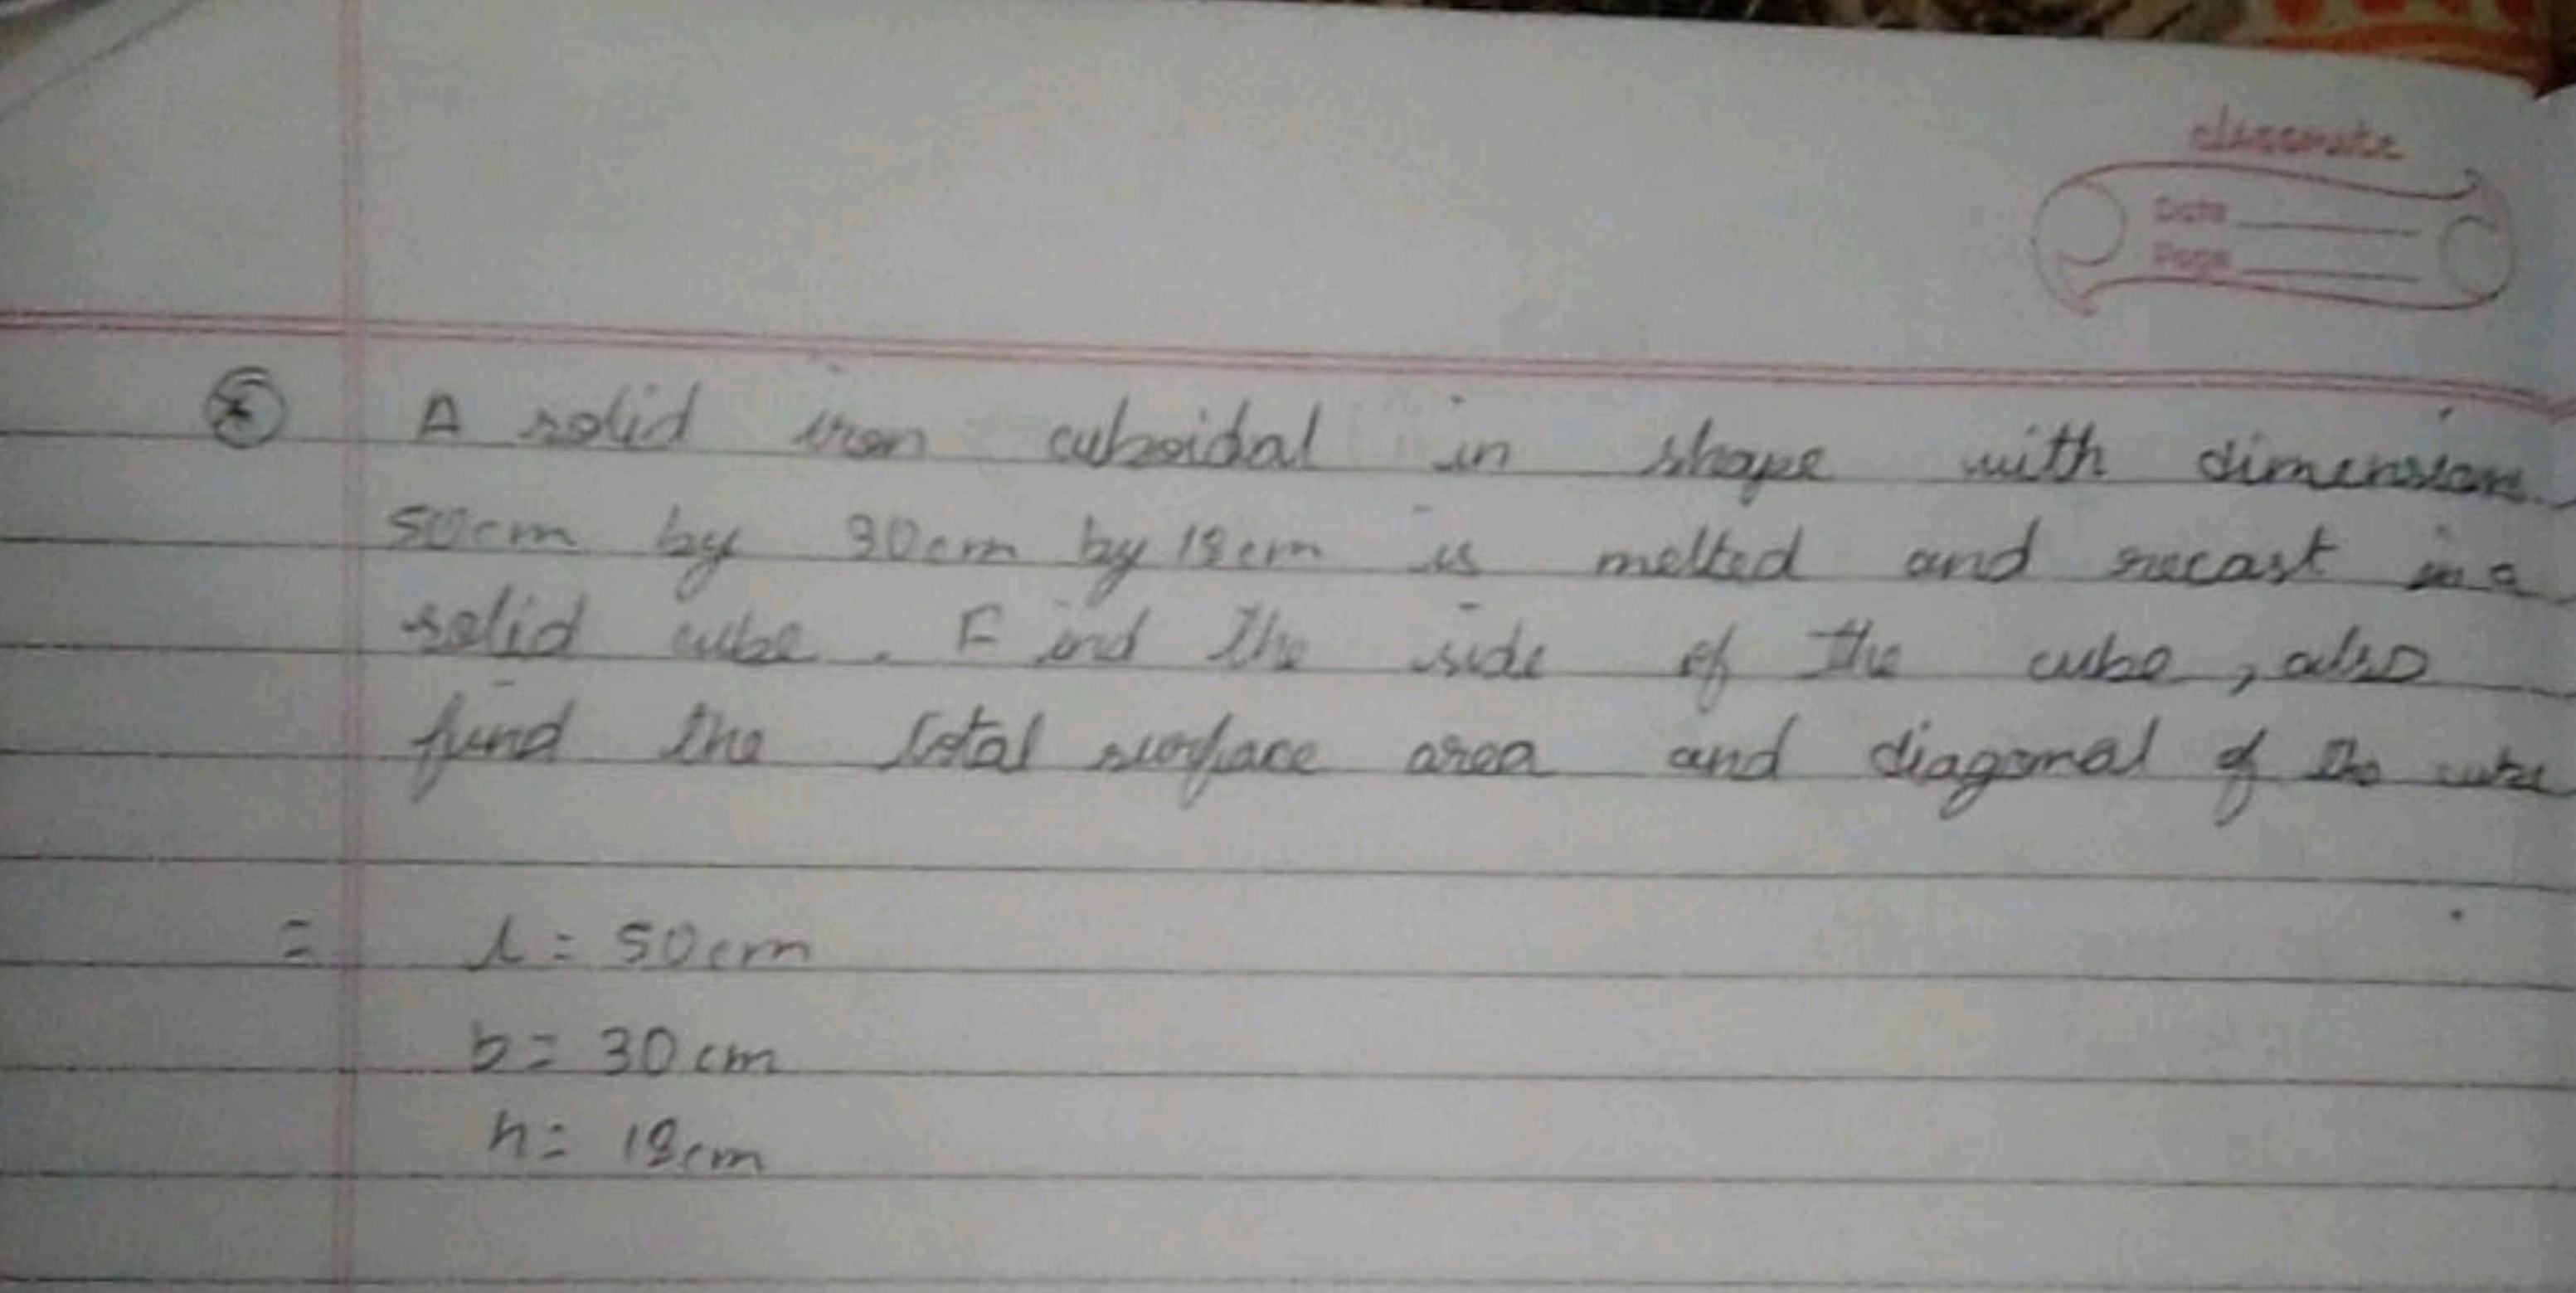 classmate
Date
Page
A solid iron cuboidal in shape with dimension
50cm by 30cm by 18cm is melted and recast in a
solid cube. Find the side of the cube, also
find the total surface area and diagonal of the cube
= l = 50cm
b = 30cm
h = 18cm